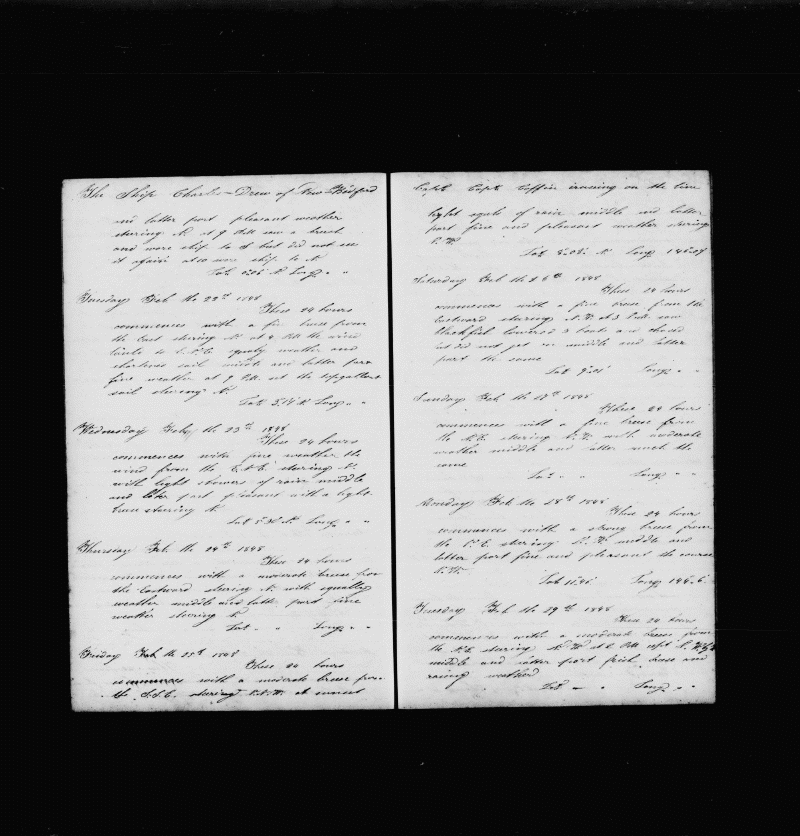 The Ship Charles Drew of New Bedford
and latter part pleasant weather
stearing N. at 9 AM saw a breach
and wore ship to S but did not see
it again at 10 wore ship to N.
Lat. N Long. " "
Tuesday Feb the 22nd 1848
These 24 hours
commences with a fine breese from
the East stearing N at 4 PM the wind
to squaly weather and
shortened sail middle and latter part
fine weather at 9 PM set the topgallant
sail stearing N.
Lat. 3.14 N Long. " "
Wednesday Feb, the 23rd 1848
These 24 hours
commences with fine weather the
wind from the stearing N.
with light showers of rain middle
and later part pleasant with a light
breese stearing N
Lat N Long. " "
Thursday Feb. the 24th 1848
These 24 hours
commences with a moderate breese from
the Eastward stearing N. with squally
weather middle and latter part fine
weather stearing N.
Lat. " " Long. " "
Friday Feb the 25th 1848
These 24 hours
commences with a moderate breese from
the stearing at sunset
Capt. Coffin cruising on the line
light squals of rain middle and latter
part fine and pleasant weather stearing
Lat. N Long.
Saturday Feb the 26th 1848
These 24 hours
commences with a fine breese from the
Eastward stearing at 3 PM saw
blackfish lowered 3 boats and chased
but did not get middle and latter
part the same
Lat Long. " "
Sunday Feb the 27th 1848
These 24 hours
commences with a fine breese from
the stearing with moderate
weather middle and latter much the
same
Lat. " " Long. " "
Monday Feb the 28th 1848
These 24 hours
commences with a strong breese from
the stearing middle and
latter part fine and pleasant the course
Lat Long
Tuesday Feb the 29th 1848
These 24 hours
commences with a moderate breese from
the stearing at 2 PM kept
middle and latter part fresh breese and
weather
Lat Long. " "